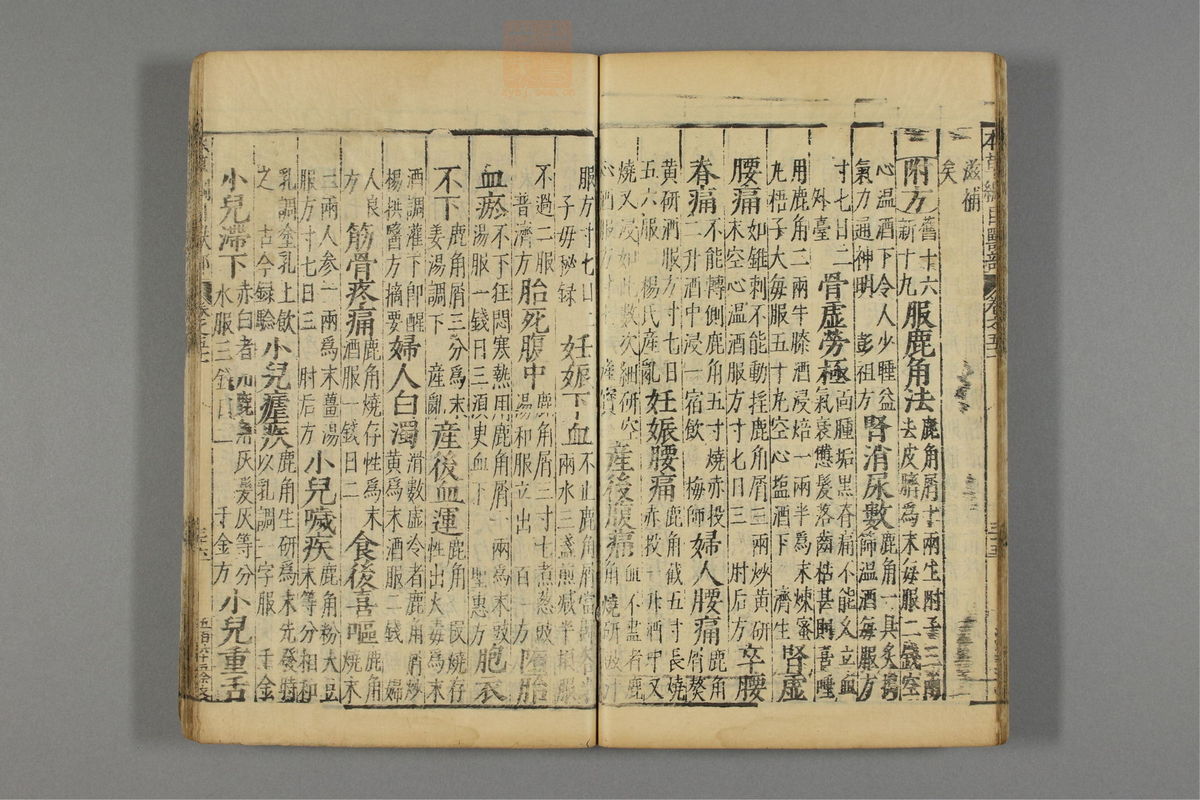 本草綱目獸部 卷之五十一
滋補矣
附方舊十六新十九服鹿角法鹿角屑十兩生附子三兩去皮臍爲末每服二錢空
心温酒下令人少睡益氣力通神明彭祖方腎消尿數鹿角一具炙擣篩温酒每服方
寸七日二外臺骨虛勞極面腫垢黑脊痛不能久立血氣衰憊髮落齒枯甚則喜唾
用鹿角二兩牛膝酒浸焙一兩半爲末煉蜜丸梧子大每服五十丸空心塩酒下濟生腎虛
腰痛如錐刺不能動搖鹿角屑三兩炒黄研末空心温酒服方寸七日三肘后方卒腰
脊痛不能轉側鹿角五寸燒赤投二升酒中浸一宿飲梅師婦人腰痛鹿角屑熬
黄研酒服方寸七日五六服楊氏産亂妊娠腰痛鹿角截五寸長燒赤投一升酒中又
燒又浸如此數次細研空心酒服方寸七産寶産後腹痛血不盡者鹿角燒研豉汁
服方寸七日子母秘録妊娠下血不止鹿角屑當歸各半兩水三盞煎减半頓服
不過二服普濟方胎死腹中鹿角屑三寸七煮葱豉湯和服立出百一方墮胎
血瘀不下狂悶寒熱用鹿角屑一兩爲末豉湯服一錢日三須臾血下聖惠方胞衣
不下鹿角屑三分爲末姜湯調下産亂産後血運鹿角一段燒存性出火毒爲末
酒調灌下即醒楊拱醫方摘要婦人白濁滑數虛冷者鹿角屑炒黄爲末酒服二錢婦
人良方筋骨疼痛鹿角燒存性爲末酒服一錢日二食後喜嘔鹿角燒末
二兩人參一兩爲末薑湯服方寸七日三肘后方小兒噦疾鹿角粉大豆末等分相和
乳調塗乳上飲之古今録驗小兒瘧疾鹿角生研爲末先發時以乳調一字服千金
小兒滯下赤白者用鹿角灰髮灰等分水服三錢日二千金方小兒重舌